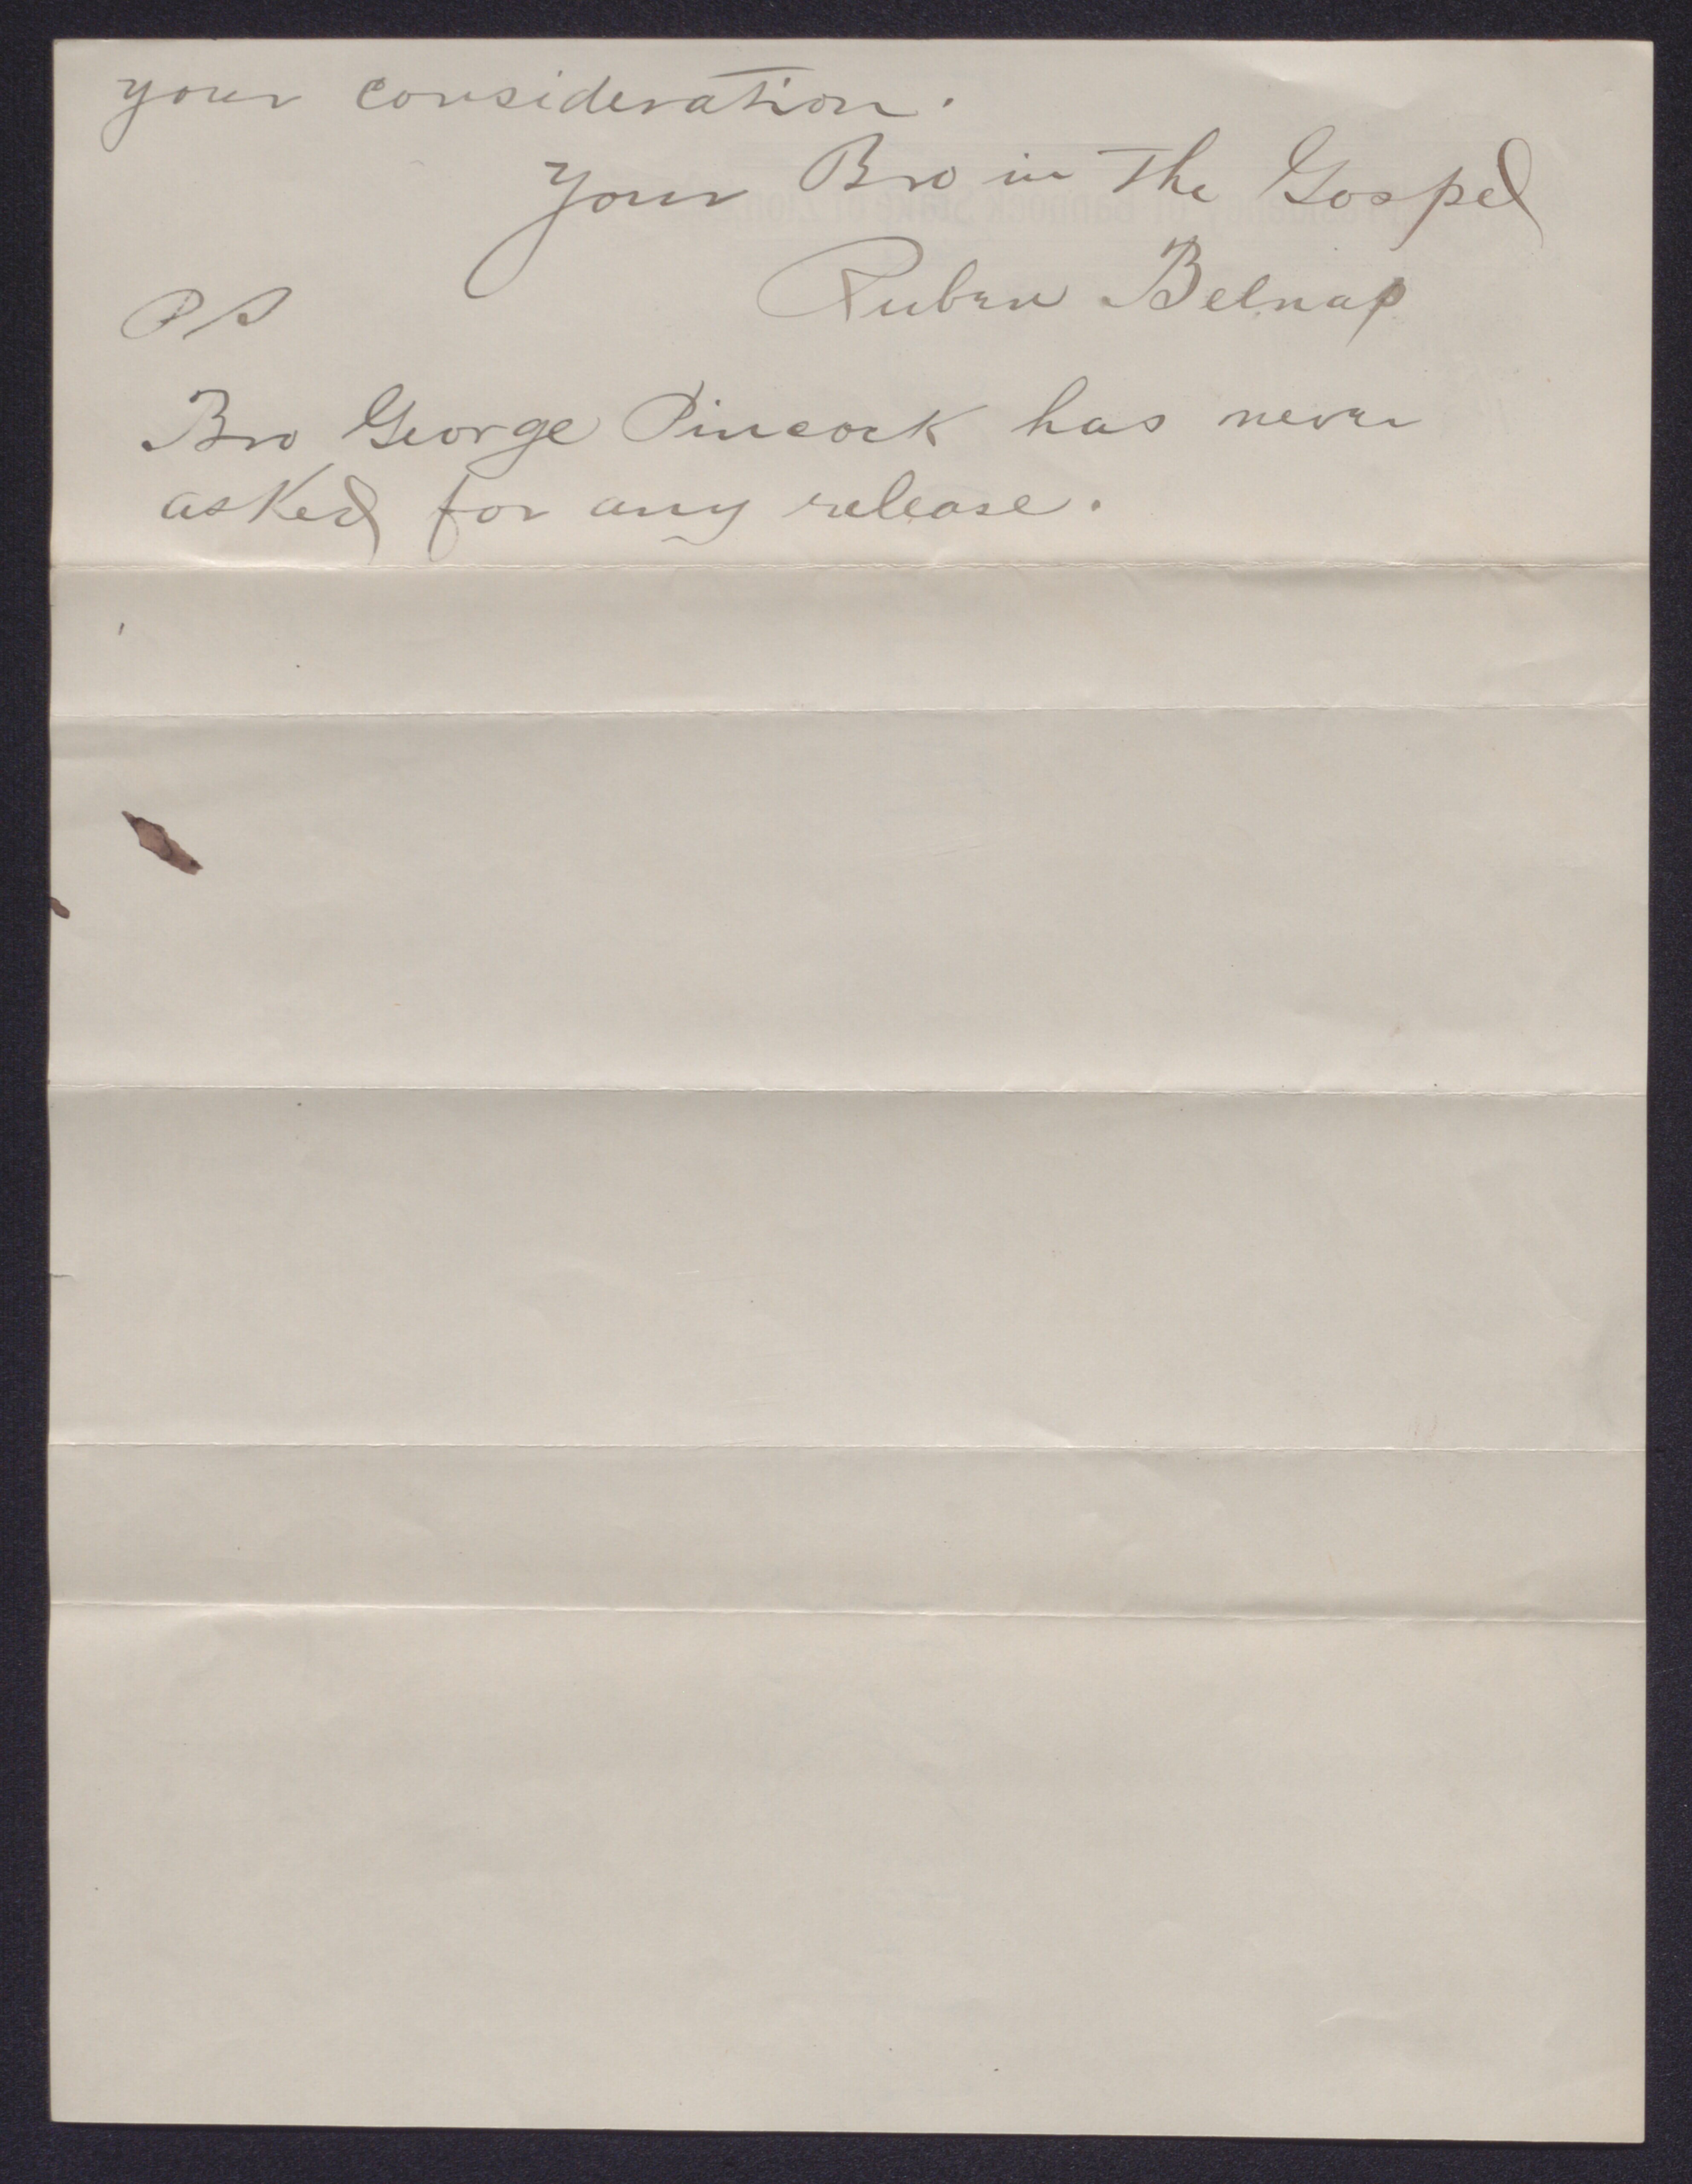 your consideration.
Your Bro in the Gospel
Ruben Belnap
PS
Bro George Pincock has never
asked for any release.